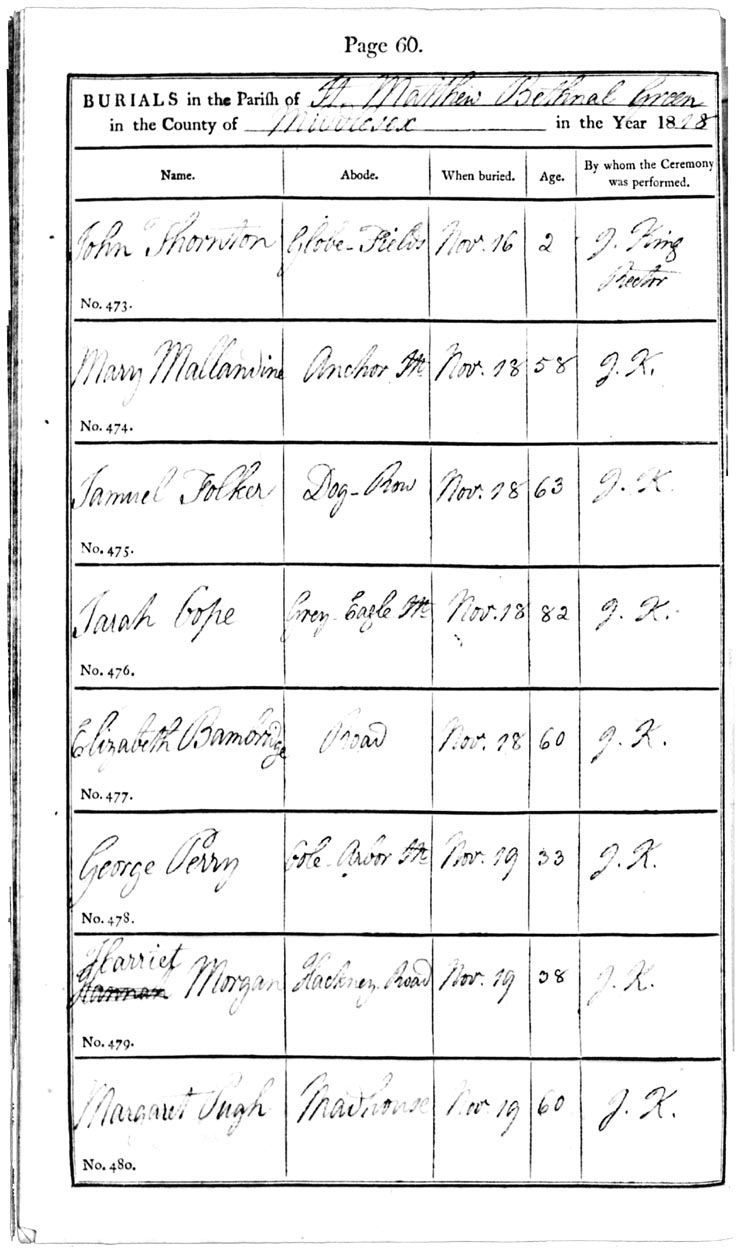 Page 60.
BURIALS in the Parish of St. Matthew Bethnal Green
in the County of Middlesex in the Year 1818
Name. Abode. When buried. Age. By whom the Ceremony was performed.
John Thornton Globe-Fields Nov. 16 2 J. King
Rector
No. 473.
Mary Mallandine Anchor Str. Nov. 18 58 J. K.
No. 474.
Samuel Folker Dog-Row Nov. 18 63 J. K.
No. 475.
Sarah Cope Grey-Eagle Str. Nov. 18 82 J. K.
No. 476.
Elizabeth Bambridge Road Nov. 18 60 J. K.
No. 477.
George Perry Cole-Arbor Str. Nov. 19 33 J. K.
No. 478.
Harriet
Hannah Morgan Hackney Road Nov. 19 38 J. K.
No. 479.
Margaret Pugh Madhouse Nov. 19 60 J. K.
No. 480.